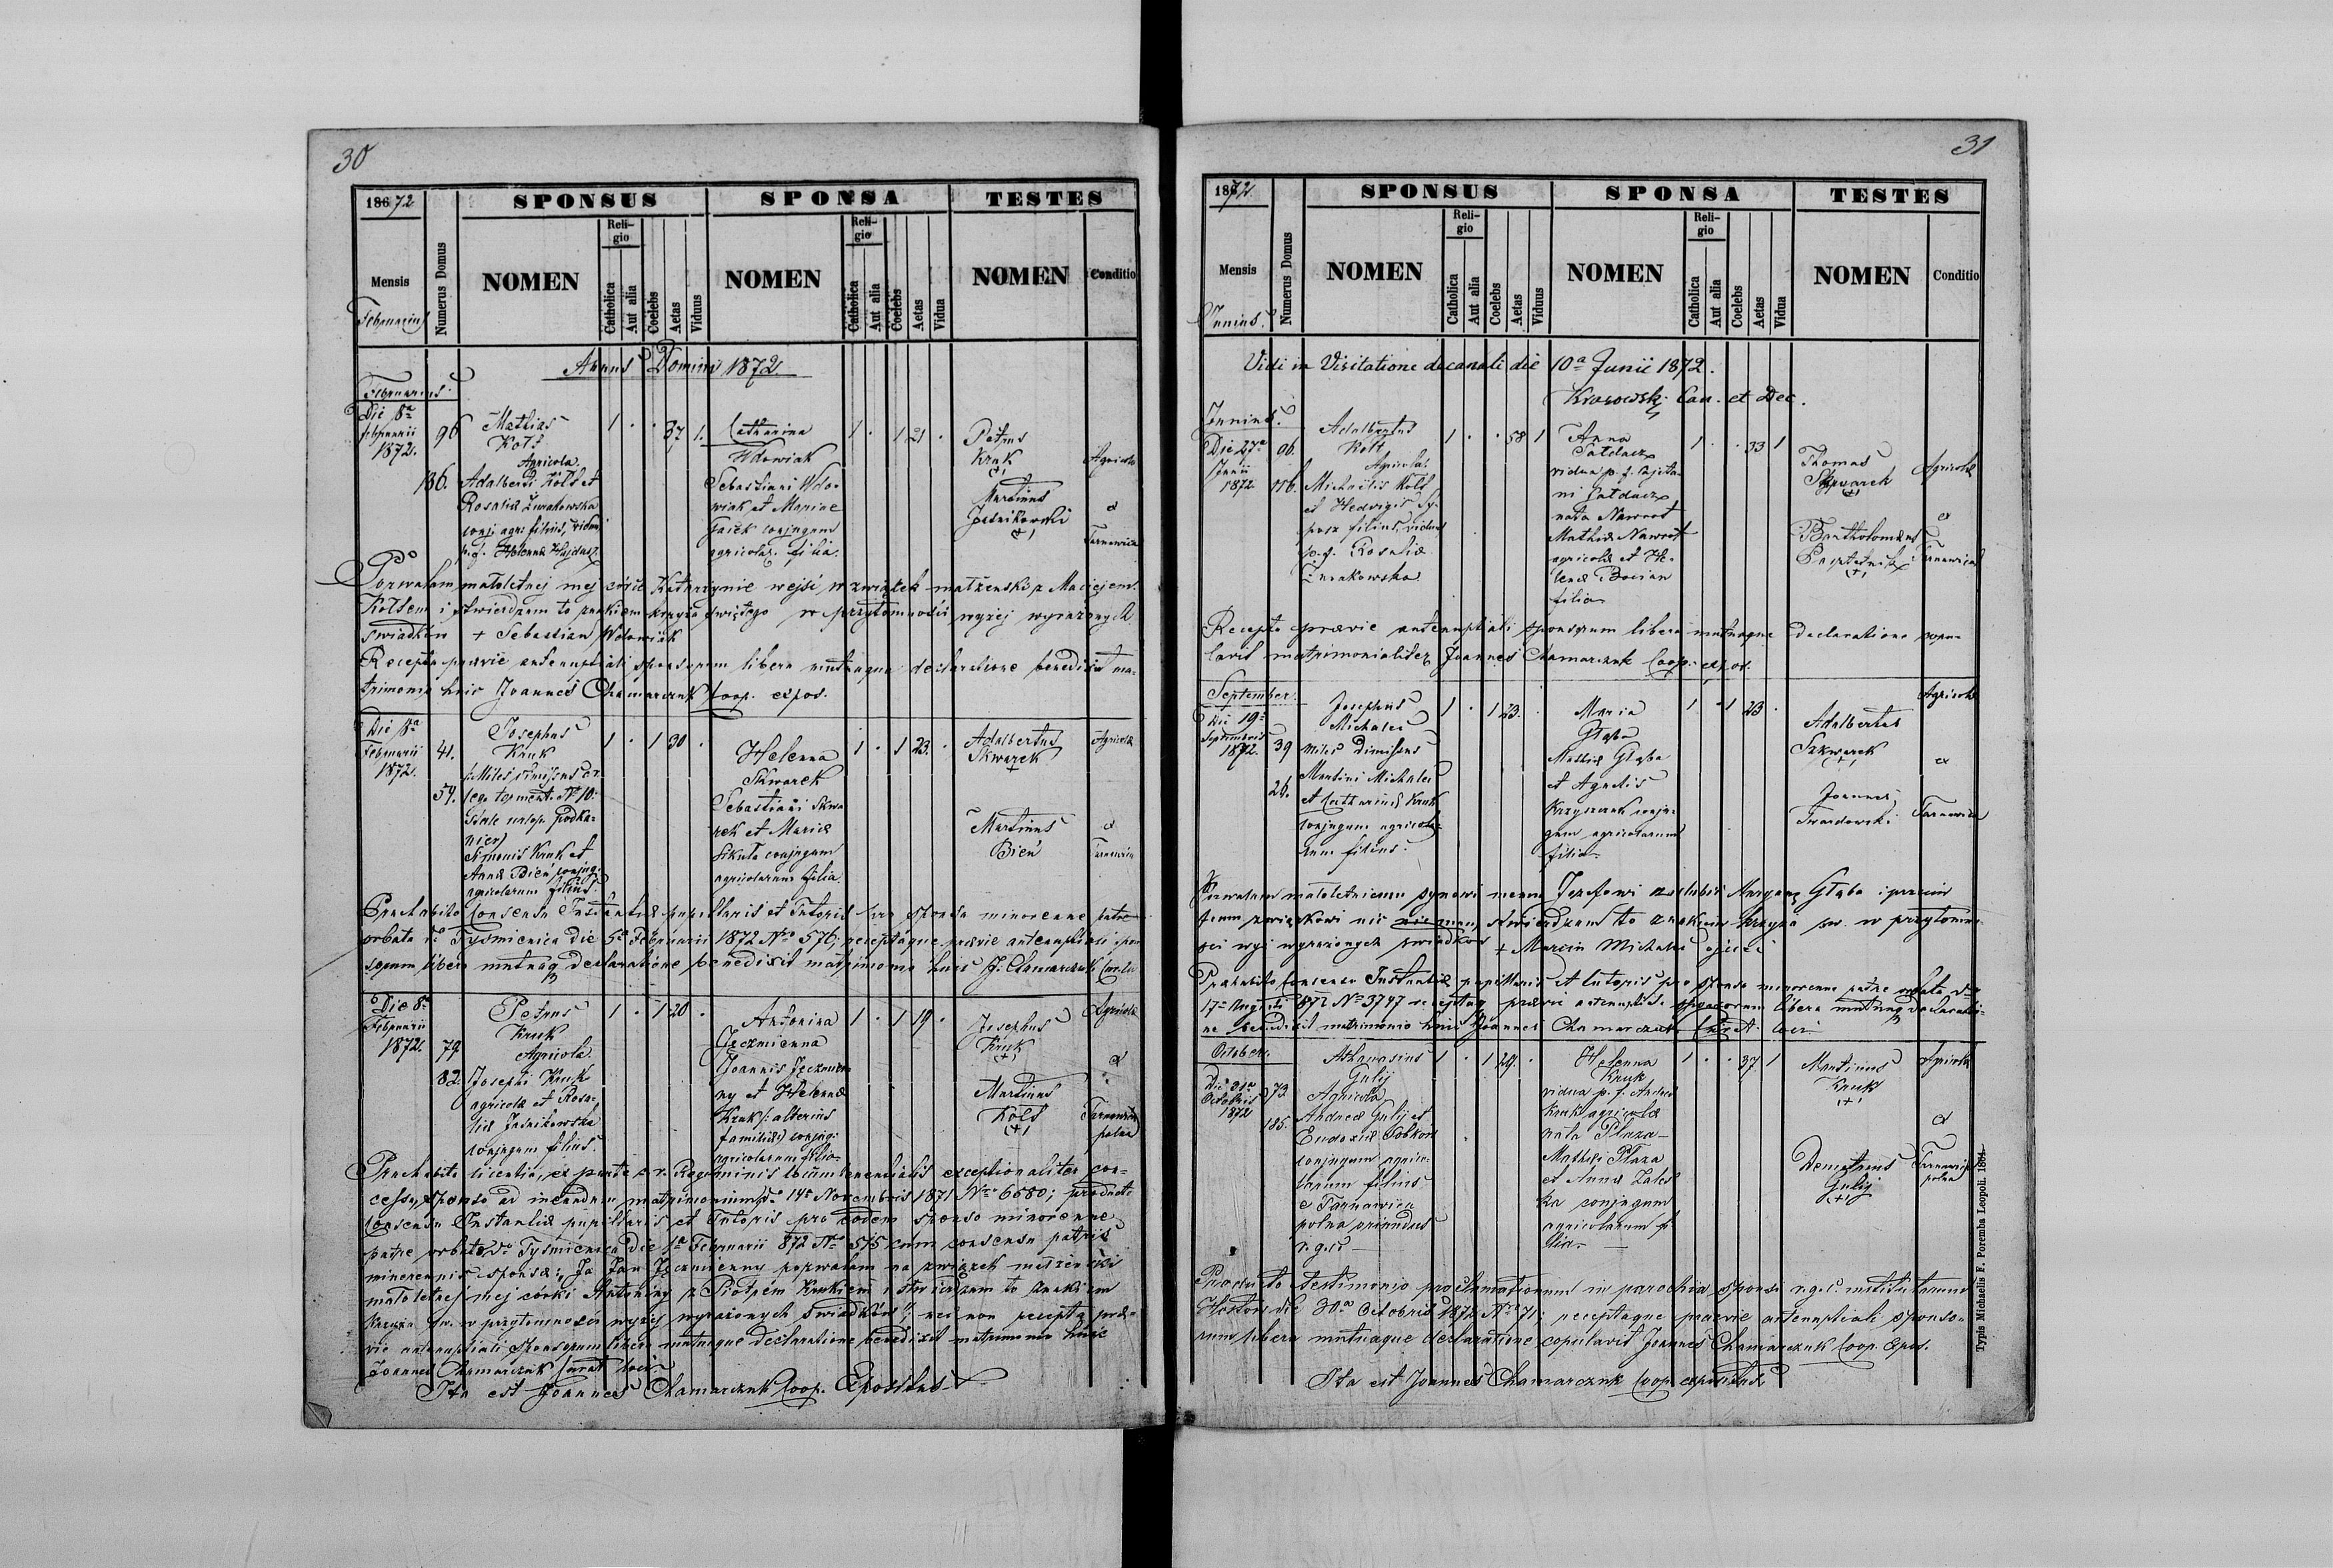 30
18672
SPONSUS
SPONSA
TESTES
Mensis
Februarius
Numerus Domus
NOMEN
Religio
Catholica
Aut alia
Coelebs
Aetas
Viduus
NOMEN
Religio
Catholica
Aut alia
Coelebs
Aetas
Vidua
NOMEN
Conditio
Annus Domini 1872.
Februarius.
Die 8va
Februarii
1872.
96
136.
Mathias
Kołt
Agricola.
Adalberti Kołt et
Rosaliæ Żurakowska
conj. agr. filius, viduus
p. d. Helenæ Hajdasz
1 . . 37 1.
Catharina
Wdowiak
Sebastiani Wdo-
wiak et Mariae
conjugum
agricolar. filia.
1 . 1 21 .
Petrus
Kruk
+
Martinus
Jaśnikowski
+
Agricolæ
ex
Tarnawica
Pozwalam małoletniej mej córce Katarzynie wejść w związek małżeński z Maciejem
Kołtem i stwierdzam to znakiem krzyża świętego w przytomności wyżej wyrażonych
świadków + Sebastian Wdowiak
Recepta prævie antenuptiali sponsorum libera mutuaque declaratione benedixit ma-
trimonio huic Joannes Chamarczuk Coop. expos.
Die 8va
Februarii
1872.
41.
54.
Josephus
Kruk
Miles dimissus ex
Simonis Kruk et
Annæ Bień conjug.
agricolarum filius
1 . 1 30 .
Helenna
Skwarek
Sebastiani Skwa-
rek et Mariæ
Sikuta conjugum
agricolarum filia.
1 . 1 23. .
Adalbertus
Skwarek
+
Martinus
Bień
Agricolæ
ex
Tarnawica
Præhabito Consensu Instantiæ pupillaris et Tutoris pro sponsa minorenne patre
orbata do Tysmienica die 5a Februarii 1872 Nro 576; receptaque prævie antenuptiali spon-
sorum libera mutuaq declaratione benedixit matrimonio huic J. Chamarczuk
Die 8a
Februarii
1872.
79.
82.
Petrus
Kruk
Agricola.
Josephi Kruk
agricolæ et Rosa-
liæ Jaśnikowska
conjugum filius.
1 . 1 20 .
Antonina
Jęczmienna
Joannis Jęczmien-
ny et Helenæ
Kruk /: alterius
familiæ) conjug:
agricolarum filia
1 . 1 19 .
Josephus
Kruk
+
Martinus
Kołt
+
Agricolæ
ex
Tarnawica
polna
Præhabita licentia, ex parte
exceptionaliter con-
cessa, sponso ad ineundum matrimonium do 14a Novembris 1871 Nro 6680; producto
Consensu Instantiæ pupillaris et Tutoris pro eodem sponso minorenne
patre orbato do Tysmienica die 1a Februarii 872 No 575 cum consensu patris
minorennis sponsæ: Ja Jan Jęczmienny pozwalam na związek małżeński
małoletniej mej córki Antoniny z Piotrem Krukiem i stwierdzam to znakiem
krzyża św. w przytomności wyżej wyrażonych świadków"; nec non recepta præ-
vie antenuptiali sponsorum libera mutuaque declaratione benedixit matrimonio huic
Joannes Chamarczuk Curat. loci
Ita est Joannes Chamarczuk Coop. Expositus
31
1872
SPONSUS
SPONSA
TESTES
Mensis
Junius.
Numerus Domus
NOMEN
Religio
Catholica
Aut alia
Coelebs
Aetas
Viduus
NOMEN
Religio
Catholica
Aut alia
Coelebs
Aetas
Vidua
NOMEN
Conditio
Vidi in Visitatione decanali die 10a Junii 1872.
Krasowski Can. et Dec.
Junius.
Die 27a
Junii
1872
96.
Adalbertus
Kołt
Agricola.
Michaelis Kołt
et Hedvigis
filius, viduus
p. d. Rosaliæ
Żurakowska
1 . . 58 1
Anna
Pałdacz
vidua p. d. Cajeta-
ni Pałdacz
nata Nawrot
Mathiæ Nawrot
agricolæ et He-
lenæ Bocian
filia
1 . . 33 1
Thomas
Skwarek
+
Bartholomæus
+
Agricolæ
ex
Tarnawica
Recepta prævie antenuptiali sponsorum libera mutuaque declaratione copu-
lavit matrimonialiter Joannes Chamarczuk Coop. expos.
September.
Die 19a
Septembris
1872.
39
28.
Josephus
Michalec
Miles Dimissus
Martini Michalec
et Catharinæ Kruk
conjugum agricola-
rum filius.
1 . 1 23. .
Maria
Głąba
Mathiæ Głąba
et Agnetis
conju-
gum agricolarum
filia.
1 . 1 23 .
Adalbertus
Skwarek
+
Joannes
Twardowski
Agricolæ
ex
Tarnawica
Pozwalam małoletniemu synowi memu Józefowi zaślubić Maryannę Głąba i przeciw
temu związkowi nic nie mam, stwierdzam to znakiem krzyża św. w przytomno-
ści wyż wyrażonych świadków + Marcin Michalec ojciec
Præhabito Consensu Instantiæ pupillaris et tutoris pro sponsa minorenne patre orbata do
17a Augusti 1872 No 3797 receptaq prævie antenuptiali sponsorum libera mutuaq declaratio-
ne benedixit matrimonio huic Joannes Chamarczuk Curat. loci.
October.
Die 31a
Octobris
1872
73
185.
Athanasius
Gulij
Agricola
Andreæ Gulij et
Eudoxiæ Sobków
conjugum agrico-
larum filius
e Tarnawica
polna oriundus
r. g. c.
1 . 1 29. .
Helenna
Kruk
vidua p. d. Andreæ
Kruk agricolæ
nata Płaza
Mathiæ Płaza
et Annæ Zales-
ka conjugum
agricolarum fi-
lia.
1 . . 37 1
Martinus
Kruk
+
Demetrius
Gulij
+
Agricolæ
ex
Tarnawica
polna
Producto testimonio proclamationum in parochia sponsi r.g.c. institutarum
30a Octobris 1872 Nro 71; receptaque prævie antenuptiali sponso-
rum libera mutuaque declaratione copulavit Joannes Chamarczuk Coop. Expos.
Ita est Joannes Chamarczuk Coop. expositus
Typis Michaelis F. Poremba Leopoli. 1864.